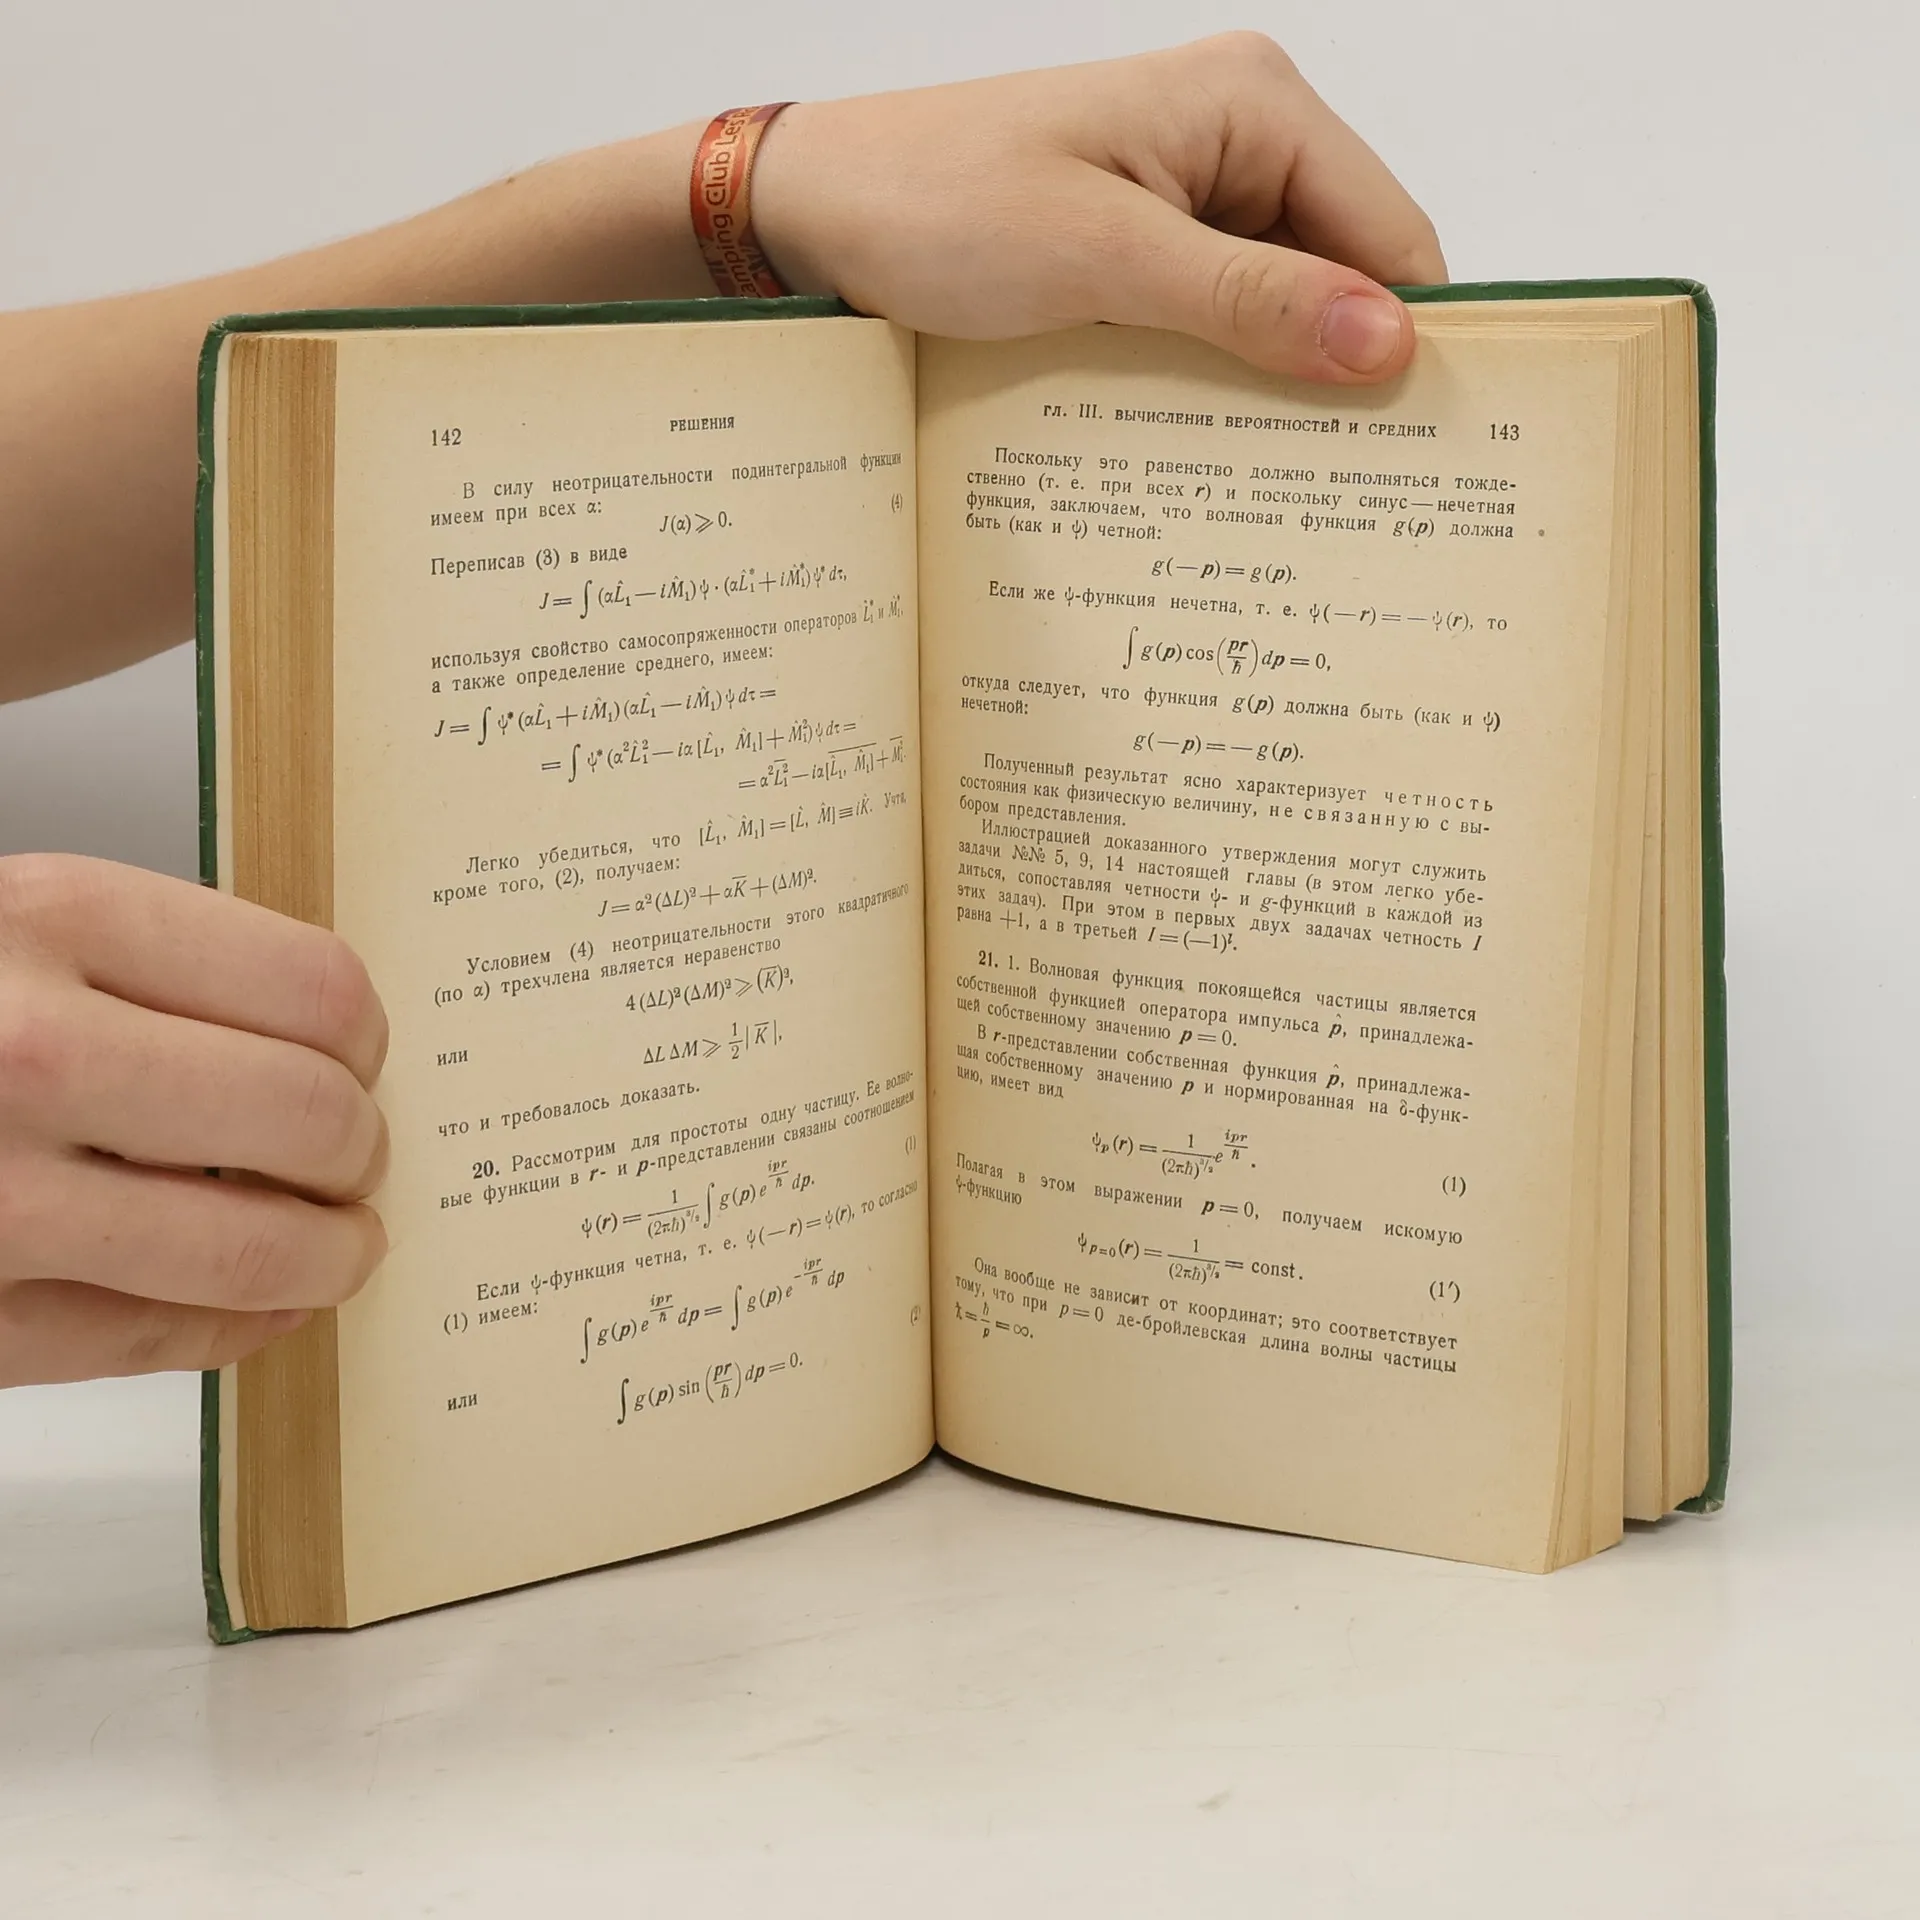 amping Club Les Pa
142 РЕШЕНИЯ
В силу неотрицательности подинтегральной функции
имеем при всех α:
J(α) ⩾ 0. (4)
Переписав (3) в виде
J = ∫ (αL̂₁ — iM̂₁) ψ · (αL̂₁* + iM̂₁*) ψ* dτ,
используя свойство самосопряженности операторов L̂₁* и M̂₁*,
а также определение среднего, имеем:
J = ∫ ψ* (αL̂₁ + iM̂₁) (αL̂₁ — iM̂₁) ψ dτ =
= ∫ ψ* (α²L̂₁² — iα [L̂₁, M̂₁] + M̂₁²) ψ dτ =
= α²L̅₁² — iα[L̂₁, M̂₁] + M̅₁².
Легко убедиться, что [L̂₁, M̂₁] = [L̂, M̂] ≡ iK̂. Учтя,
кроме того, (2), получаем:
J = α² (ΔL)² + αK̅ + (ΔM)².
Условием (4) неотрицательности этого квадратичного
(по α) трехчлена является неравенство
4 (ΔL)² (ΔM)² ⩾ (K̅)²,
или ΔL ΔM ⩾ 1/2 | K̅ |,
что и требовалось доказать.
20. Рассмотрим для простоты одну частицу. Ее волно-
вые функции в r- и p-представлении связаны соотношением
ψ (r) = 1/(2πħ)^{3/2} ∫ g (p) e^{ipr/ħ} dp. (1)
Если ψ-функция четна, т. е. ψ (— r) = ψ (r), то согласно
(1) имеем:
∫ g (p) e^{ipr/ħ} dp = ∫ g (p) e^{-ipr/ħ} dp (2)
или ∫ g (p) sin (pr/ħ) dp = 0.
гл. III. ВЫЧИСЛЕНИЕ ВЕРОЯТНОСТЕЙ И СРЕДНИХ 143
Поскольку это равенство должно выполняться тожде-
ственно (т. е. при всех r) и поскольку синус — нечетная
функция, заключаем, что волновая функция g (p) должна
быть (как и ψ) четной:
g (— p) = g (p).
Если же ψ-функция нечетна, т. е. ψ (— r) = — ψ (r), то
∫ g (p) cos (pr/ħ) dp = 0,
откуда следует, что функция g (p) должна быть (как и ψ)
нечетной:
g (— p) = — g (p).
Полученный результат ясно характеризует четность
состояния как физическую величину, не связанную с вы-
бором представления.
Иллюстрацией доказанного утверждения могут служить
задачи №№ 5, 9, 14 настоящей главы (в этом легко убе-
диться, сопоставляя четности ψ- и g-функций в каждой из
этих задач). При этом в первых двух задачах четность I
равна +1, а в третьей I = (—1)^l.
21. 1. Волновая функция покоящейся частицы является
собственной функцией оператора импульса p̂, принадлежа-
щей собственному значению p = 0.
В r-представлении собственная функция p̂, принадлежа-
щая собственному значению p и нормированная на δ-функ-
цию, имеет вид
ψ_p (r) = 1/(2πħ)^{3/2} e^{ipr/ħ}. (1)
Полагая в этом выражении p = 0, получаем искомую
ψ-функцию
ψ_{p=0} (r) = 1/(2πħ)^{3/2} = const. (1′)
Она вообще не зависит от координат; это соответствует
тому, что при p = 0 де-бройлевская длина волны частицы
ƛ = ħ/p = ∞.